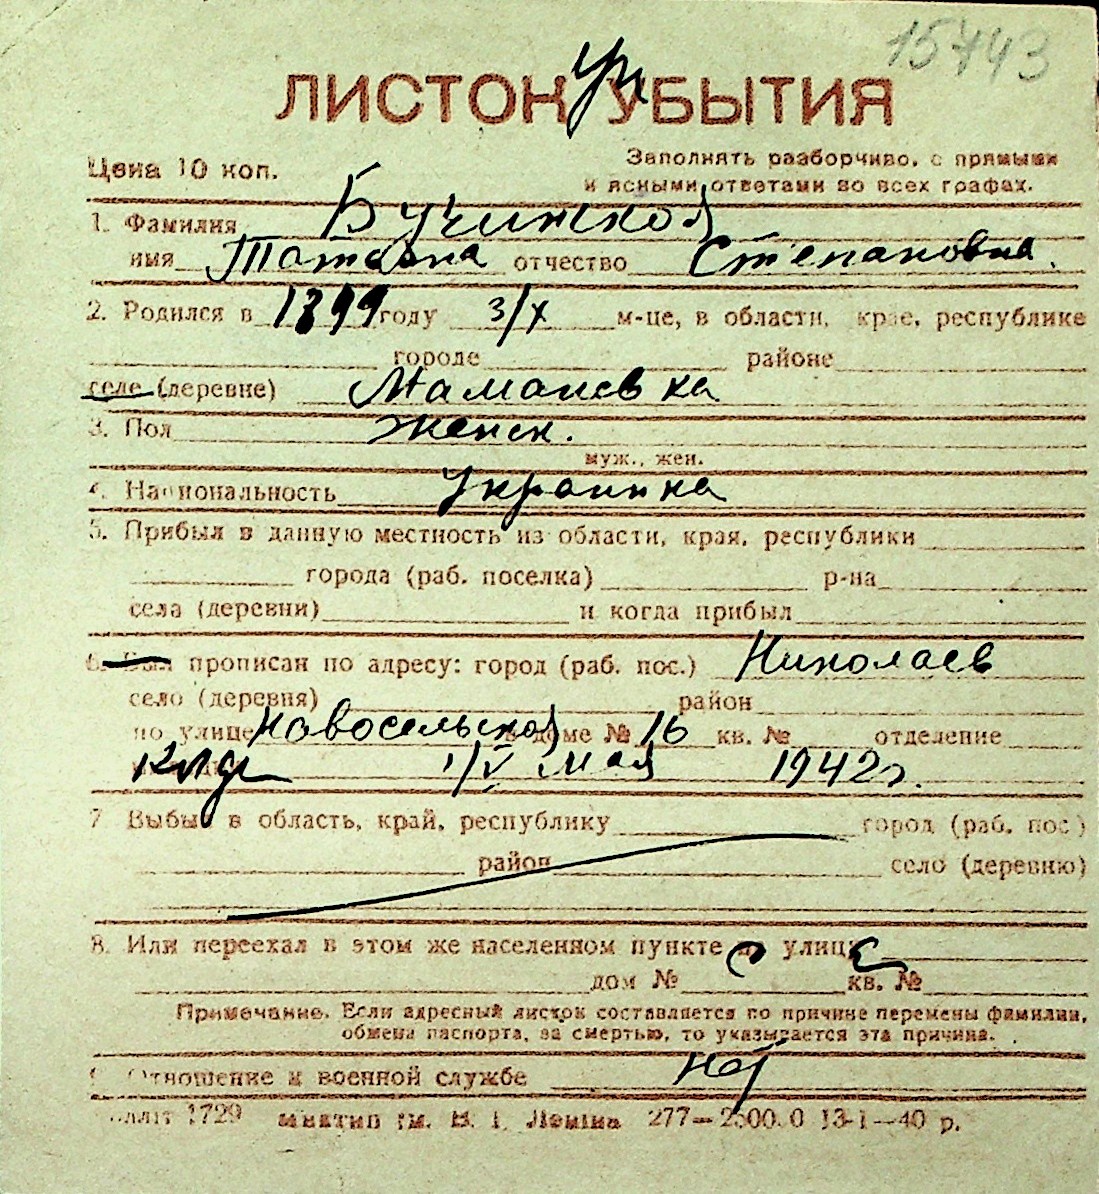 15743
ЛИСТОК УБЫТИЯ
Цена 10 коп.
Заполнять разборчиво, с прямыми
и ясными ответами во всех графах.
1. Фамилия Бучинская
имя Татьяна отчество Степановна.
2. Родился в 1899 году 3/X м-це, в области, крае, республике
городе районе
селе (деревне) Мамаиевка
3. Пол женск.
муж., жен.
4. Национальность Украинка
5. Прибыл в данную местность из области, края, республики
города (раб. поселка) р-на
села (деревни) и когда прибыл
6. Был прописан по адресу: город (раб. пос.) Николаев
село (деревня) район
по улице Новосельская в доме № 16 кв. № отделение
1/V мая 1942г.
7 Выбыл в область, край, республику город (раб. пос.)
район село (деревню)
8. Или переехал в этом же населенном пункте улице
дом № кв. №
Примечание. Если адресный листок составляется по причине перемены фамилии,
обмена паспорта, за смертью, то указывается эта причина.
Отношение к военной службе нет
1729 им. В. І. Леніна 277—2500.0 13-1—40 р.